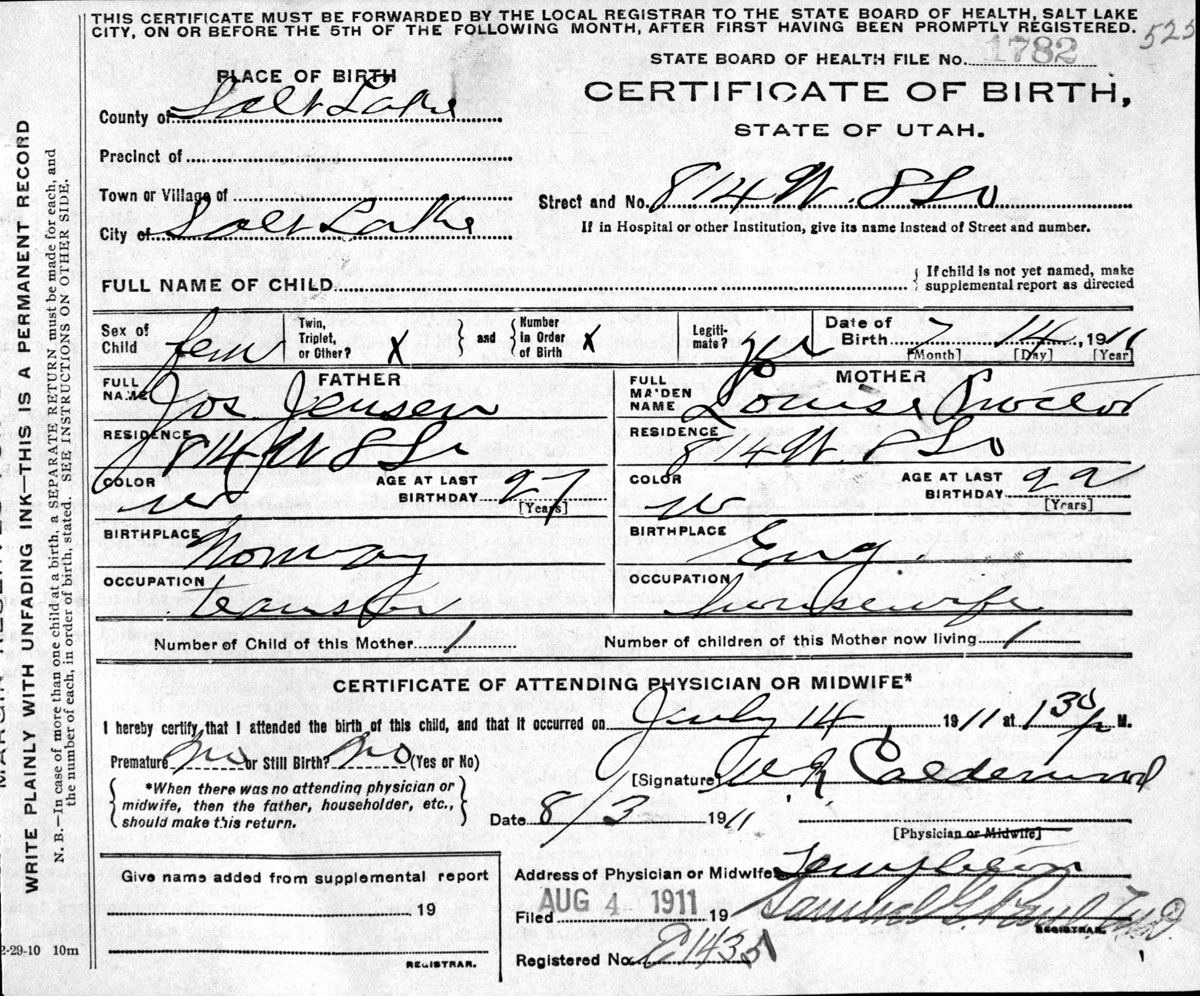 THIS CERTIFICATE MUST BE FORWARDED BY THE LOCAL REGISTRAR TO THE STATE BOARD OF HEALTH, SALT LAKE
CITY, ON OR BEFORE THE 5TH OF THE FOLLOWING MONTH, AFTER FIRST HAVING BEEN PROMPTLY REGISTERED.
525
STATE BOARD OF HEALTH FILE NO. 1782
CERTIFICATE OF BIRTH,
STATE OF UTAH.
PLACE OF BIRTH
County of Salt Lake
Precinct of
Town or Village of
City of Salt Lake
Street and No. 814 W. 8 So
If in Hospital or other Institution, give its name instead of Street and number.
FULL NAME OF CHILD
{ If child is not yet named, make
supplemental report as directed
Sex of Child fem
Twin, Triplet, or Other? X } and { Number in Order of Birth X
Legiti-mate? yes
Date of Birth 7 14, 1911
[Month] [Day] [Year]
FATHER
FULL NAME Jos Jensen
RESIDENCE 814 W 8 So
COLOR w
AGE AT LAST BIRTHDAY 27
[Years]
BIRTHPLACE Norway
OCCUPATION teamster
MOTHER
FULL MAIDEN NAME Louise Proctor
RESIDENCE 814 W. 8 So
COLOR w
AGE AT LAST BIRTHDAY 22
[Years]
BIRTHPLACE Eng.
OCCUPATION housewife
Number of Child of this Mother 1
Number of children of this Mother now living 1
CERTIFICATE OF ATTENDING PHYSICIAN OR MIDWIFE*
I hereby certify that I attended the birth of this child, and that it occurred on July 14, 1911 at 1 30 p M.
Premature No or Still Birth? No (Yes or No)
{ *When there was no attending physician or
midwife, then the father, householder, etc.,
should make this return. }
[Signature] Calderwood
Date 8/3 1911
[Physician or Midwife]
Address of Physician or Midwife Templeton
Filed AUG 4 1911 19 Samuel G. Paul
REGISTRAR.
Registered No. E1435
Give name added from supplemental report
19
REGISTRAR.
2-29-10 10m
WRITE PLAINLY WITH UNFADING INK—THIS IS A PERMANENT RECORD
N. B.—In case of more than one child at a birth, a SEPARATE RETURN must be made for each, and
the number of each, in order of birth, stated. SEE INSTRUCTIONS ON OTHER SIDE.